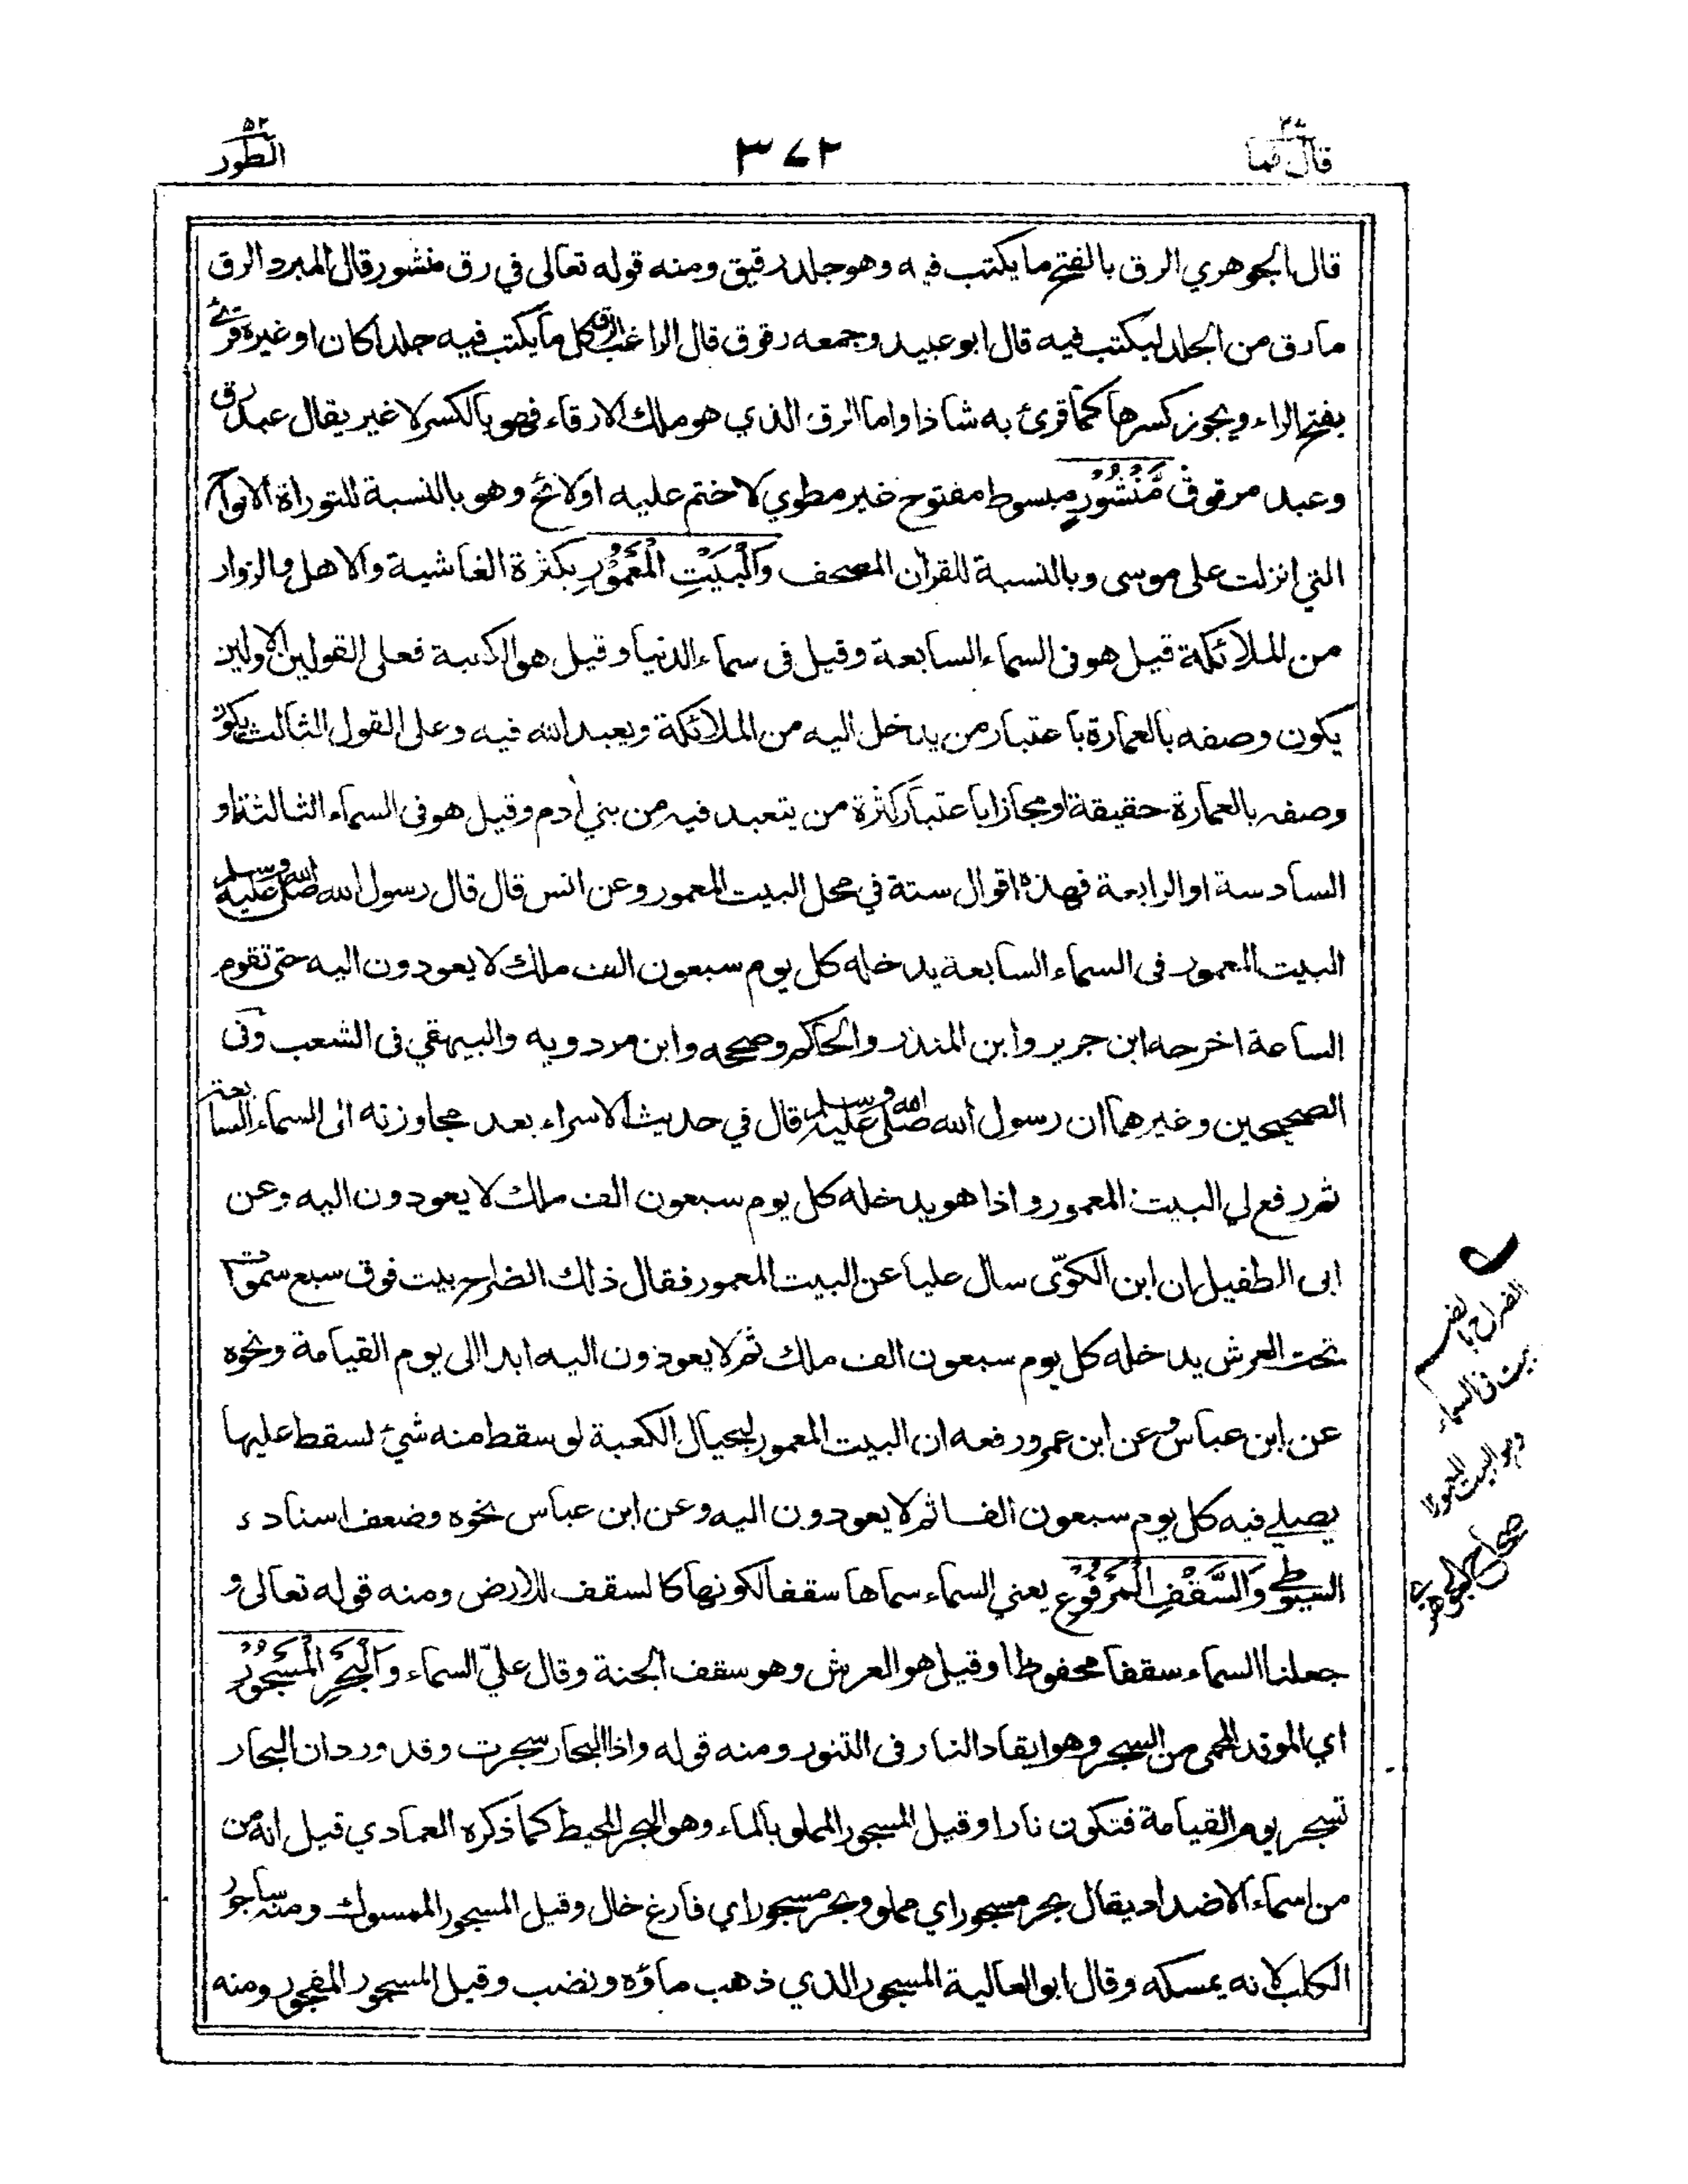 قال فما ٢٧
٣٧٢
الطور ٥٢
قال الجوهري الرق بالفتح ما يكتب فيه وهو جلد رقيق ومنه قوله تعالى في رق منشور قال المبرد الرق
ما رق من الجلد ليكتب فيه قال ابو عبيد وجمعه رقوق قال الراغب الرق كل ما يكتب فيه جلدا كان او غيره قرئ
بفتح الراء ويجوز كسرها كما قرئ به شاذا واما الرق الذي هو ملك الارقاء فهو بالكسر لا غير يقال عبد رق
وعبد مرقوق مَّنْشُوْرٍ مبسوط مفتوح غير مطوي لا ختم عليه او لائح وهو بالنسبة للتوراة الالواح
التي انزلت على موسى وبالنسبة للقرآن المصحف وَالْبَيْتِ الْمَعْمُوْرِ بكثرة الغاشية والاهل والزوار
من الملائكة قيل هو فى السماء السابعة وقيل فى سماء الدنيا وقيل هو الكعبة فعلى القولين الاولين
يكون وصفه بالعمارة باعتبار من يدخل اليه من الملائكة ويعبد الله فيه وعلى القول الثالث يكون
وصفه بالعمارة حقيقة او مجازا باعتبار كثرة من يتعبد فيه من بني ادم وقيل هو فى السماء الثالثة او
السادسة او الرابعة فهذه اقوال ستة في محل البيت المعمور وعن انس قال قال رسول الله صلى الله عليه وسلم
البيت المعمور فى السماء السابعة يدخله كل يوم سبعون الف ملك لا يعودون اليه حتى تقوم
الساعة اخرجه ابن جرير وابن المنذر والحاكم وصححه وابن مردويه والبيهقي فى الشعب وفى
الصحيحين وغيرهما ان رسول الله صلى الله عليه وسلم قال في حديث الاسراء بعد مجاوزته الى السماء السابعة
ثم رفع لي البيت المعمور واذا هو يدخله كل يوم سبعون الف ملك لا يعودون اليه وعن
ابى الطفيل ان ابن الكوّى سال عليا عن البيت المعمور فقال ذلك الضراح بيت فوق سبع سموات
تحت العرش يدخله كل يوم سبعون الف ملك ثم لا يعودون اليه ابدا الى يوم القيامة ونحوه
عن ابن عباس وعن ابن عمرو رفعه ان البيت المعمور لبحيال الكعبة لو سقط منه شئ لسقط عليها
يصلي فيه كل يوم سبعون الفا ثم لا يعودون اليه وعن ابن عباس نحوه وضعف اسناده
السيوطي وَالسَّقْفِ الْمَرْفُوْعِ يعني السماء سماها سقفا لكونها كالسقف للارض ومنه قوله تعالى و
جعلنا السماء سقفا محفوظا وقيل هو العرش وهو سقف الجنة وقال عليّ السماء وَالْبَحْرِ الْمَسْجُوْرِ
اي الموقد المحمى من السجر وهو ايقاد النار فى التنور ومنه قوله واذا البحار سجرت وقد ورد ان البحار
تسجر يوم القيامة فتكون نارا وقيل المسجور المملو بالماء وهو البحر المحيط كما ذكره العمادي قيل انه من
من اسماء الاضداد يقال بحر مسجور اي مملو وبحر مسجور اي فارغ خال وقيل المسجور الممسوك ومنه ساجور
الكلب لانه يمسكه وقال ابو العالية المسجور الذي ذهب ماؤه ونضب وقيل المسجور المفجور ومنه
الضراح بالضم
بيت فى السماء
وهو البيت المعمور
صحاح الجوهري